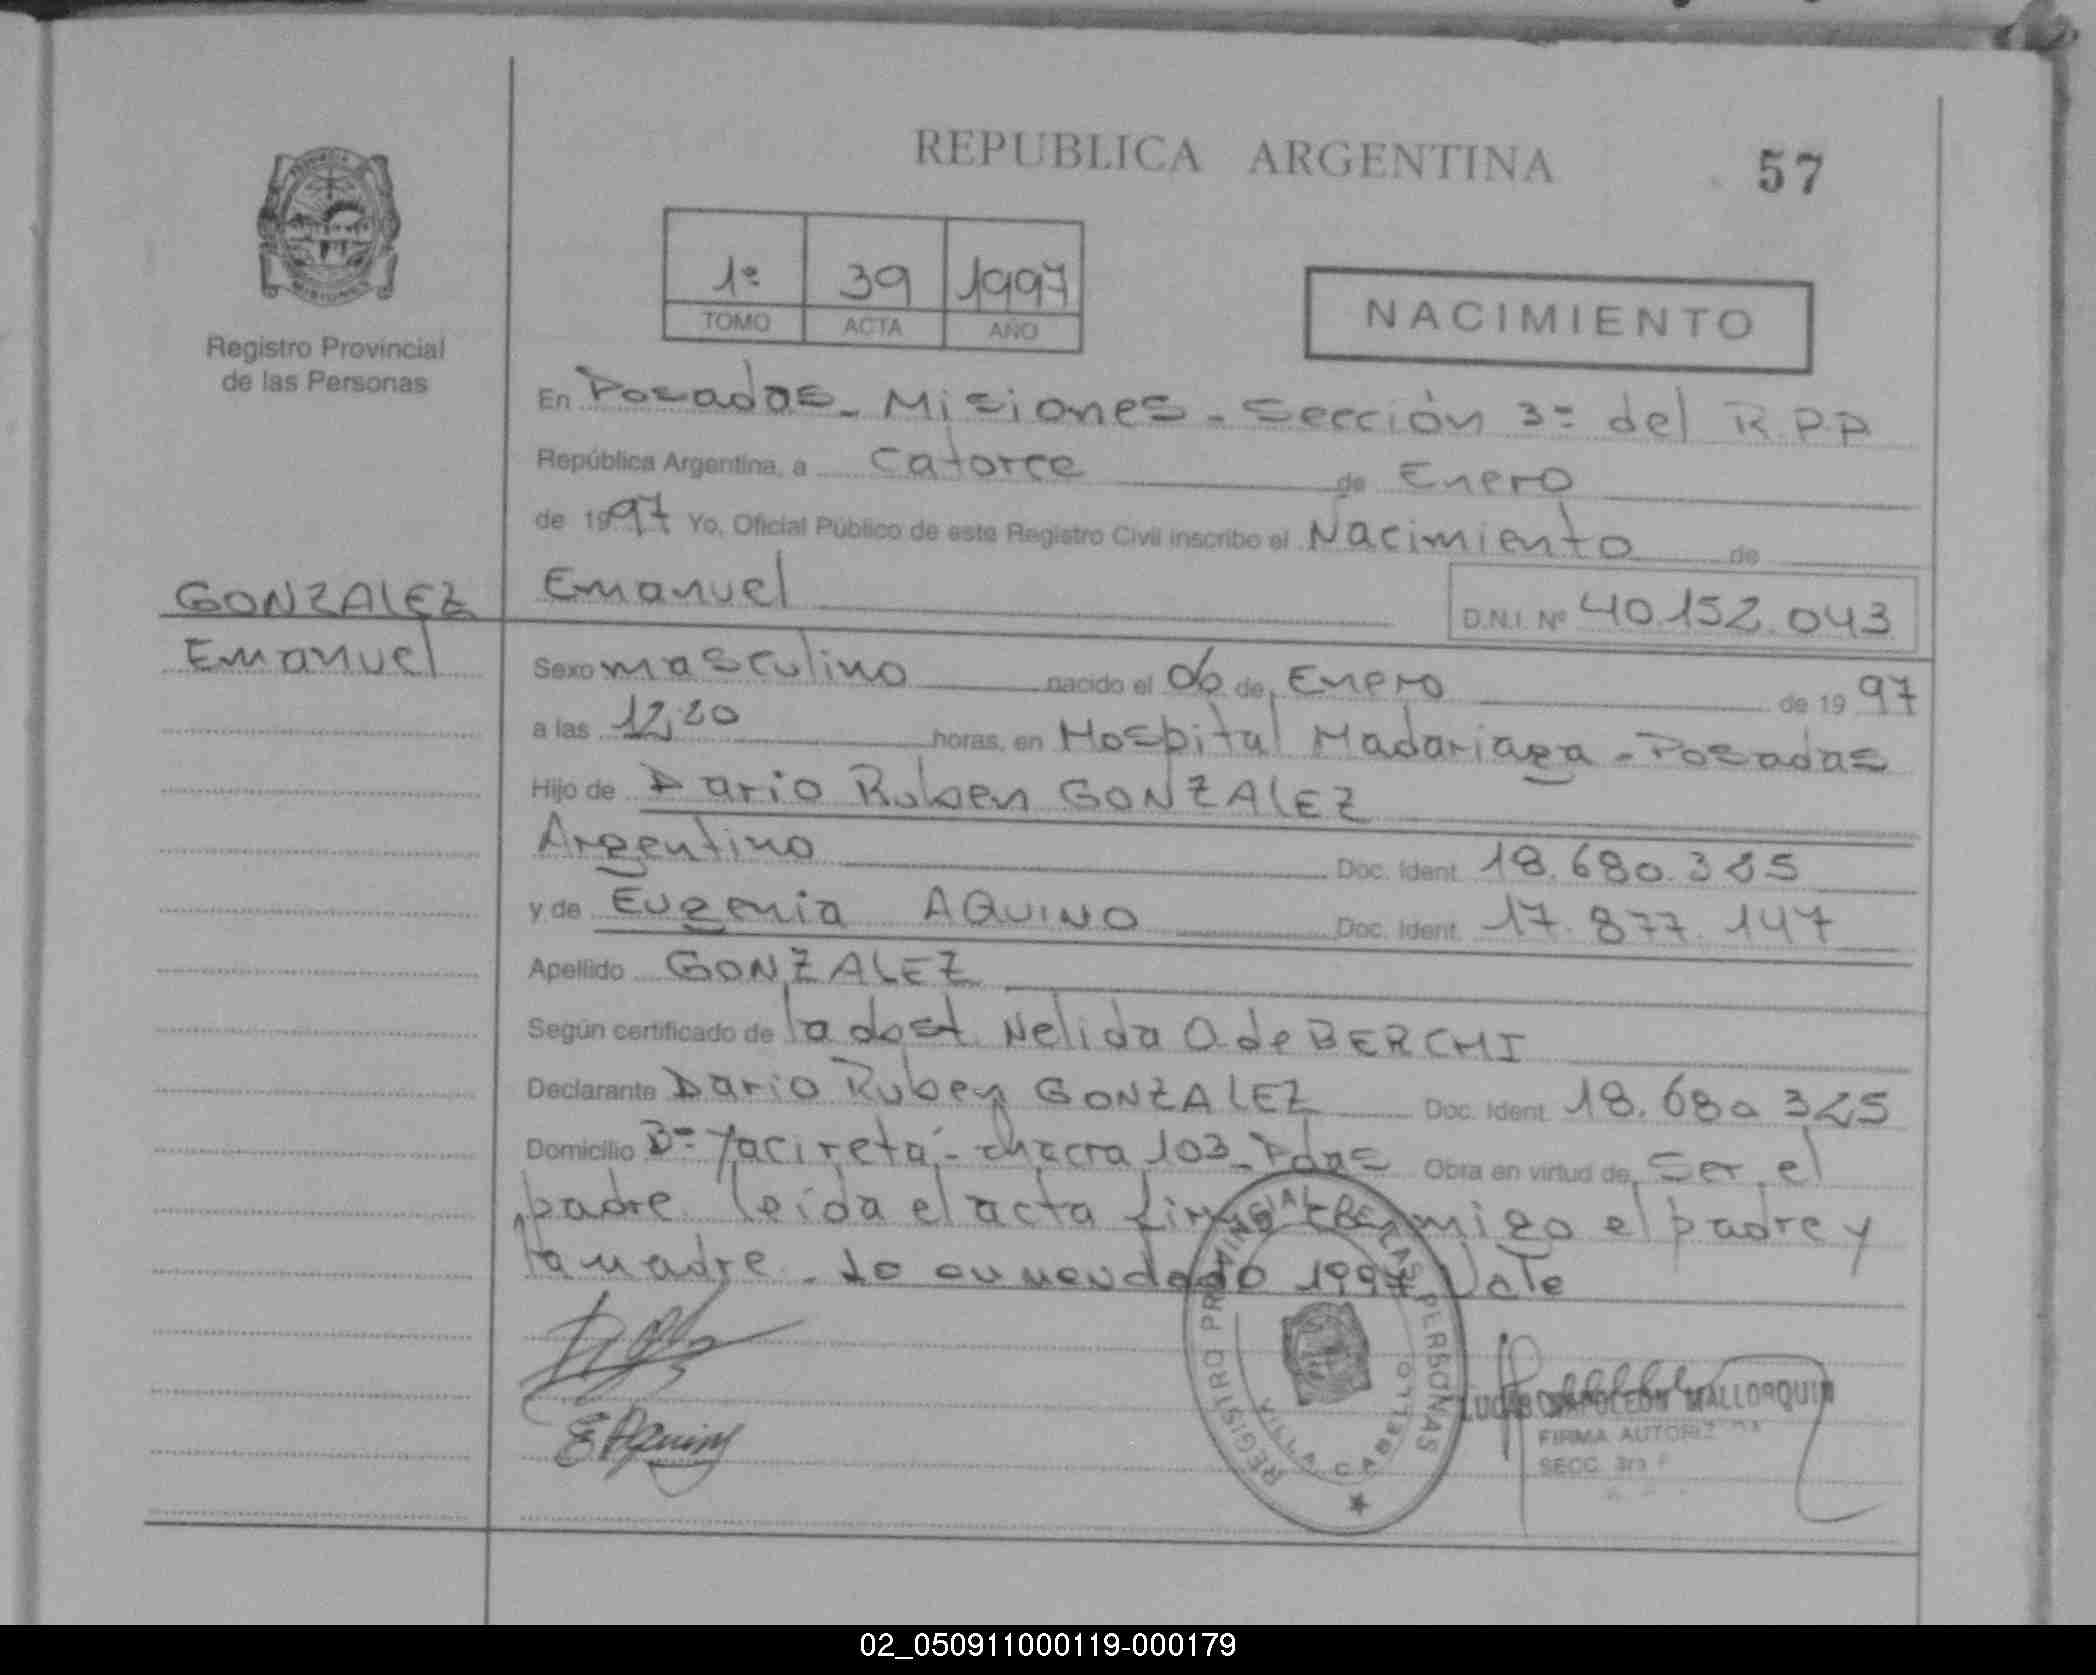 REPUBLICA ARGENTINA 57
1º 39 1997
TOMO ACTA AÑO
NACIMIENTO
Registro Provincial
de las Personas
En Posadas - Misiones - Sección 3º del R.P.P
República Argentina, a catorce de Enero
de 1997 Yo, Oficial Público de este Registro Civil inscribo el Nacimiento de
GONZALEZ
Emanuel
Emanuel D.N.I. Nº 40.152.043
Sexo masculino nacido el 06 de Enero de 1997
a las 12,20 horas, en Hospital Madariaga - Posadas
Hijo de Dario Ruben GONZALEZ
Argentino Doc. Ident. 18.680.325
y de Eugenia AQUINO Doc. Ident. 17.877.147
Apellido GONZALEZ
Según certificado de la obst. Nelida O. de BERCHI
Declarante Dario Ruben GONZALEZ Doc. Ident. 18.680.325
Domicilio Bº Yacireta - chacra 103 - Pdas Obra en virtud de ser el
padre. leida el acta firma conmigo el padre y
la madre. Lo enmendado 1997 Vale
E Aquino
REGISTRO PROVINCIAL DE LAS PERSONAS
CABELLO
NAPOLEON MALLORQUIN
FIRMA AUTORIZ
SECC. 3ra
02_050911000119-000179